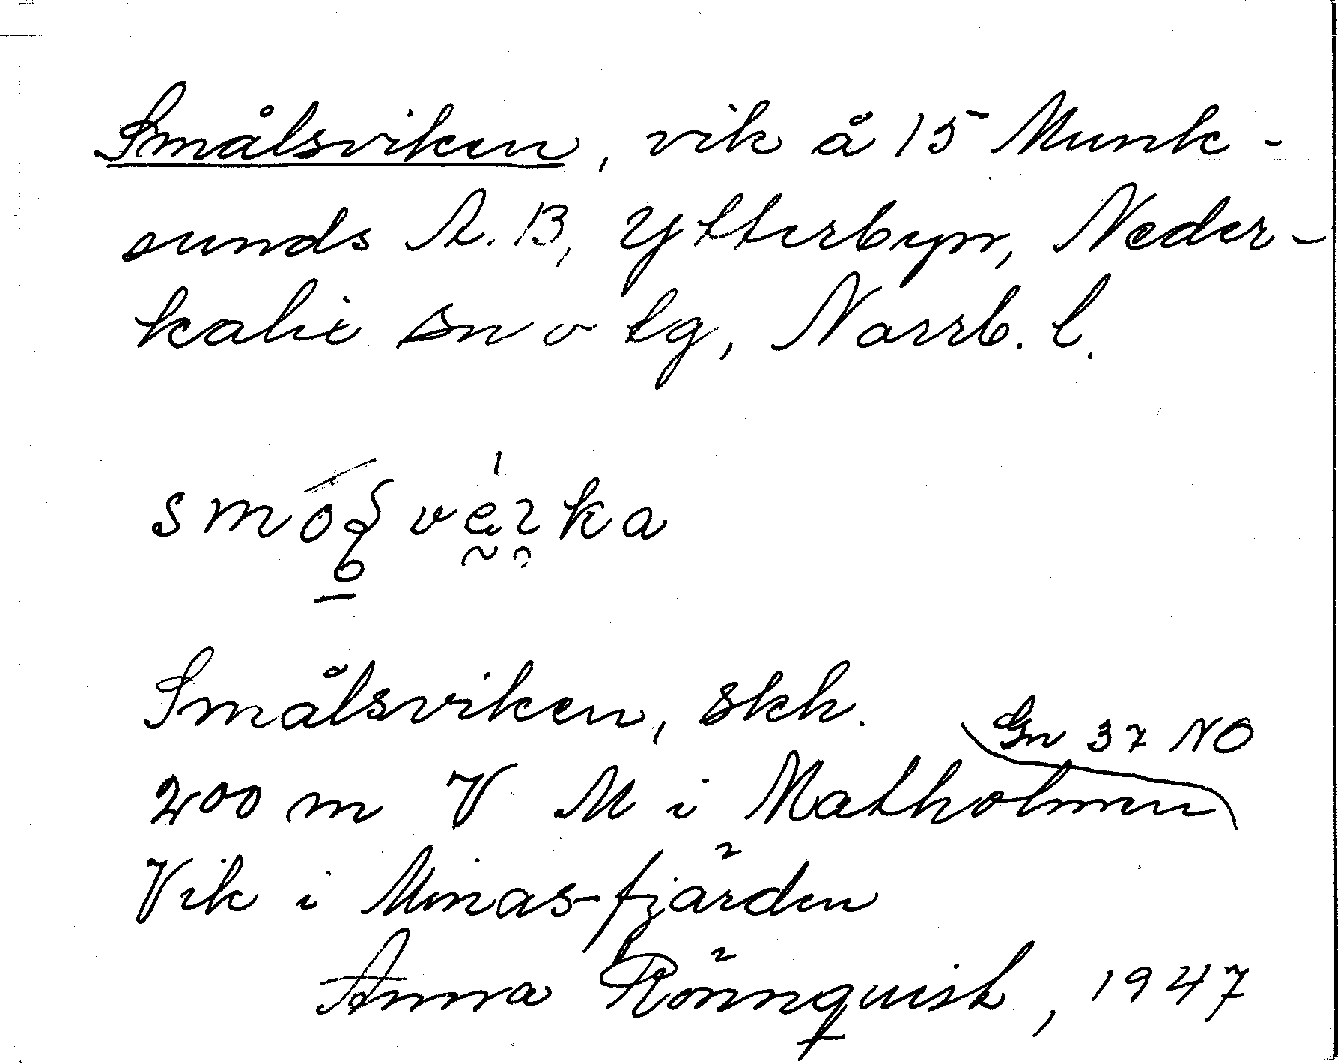 Smålsviken, vik å 15 Munk-
sunds A.B, Ytterbyn, Neder-
kalix sn o tg, Norrb. l.
Smålsviken, skh.
Gn 37 NO
200 m V M i Matholmen
Vik i Minas-fjärden
Anna Rönnquist, 1947